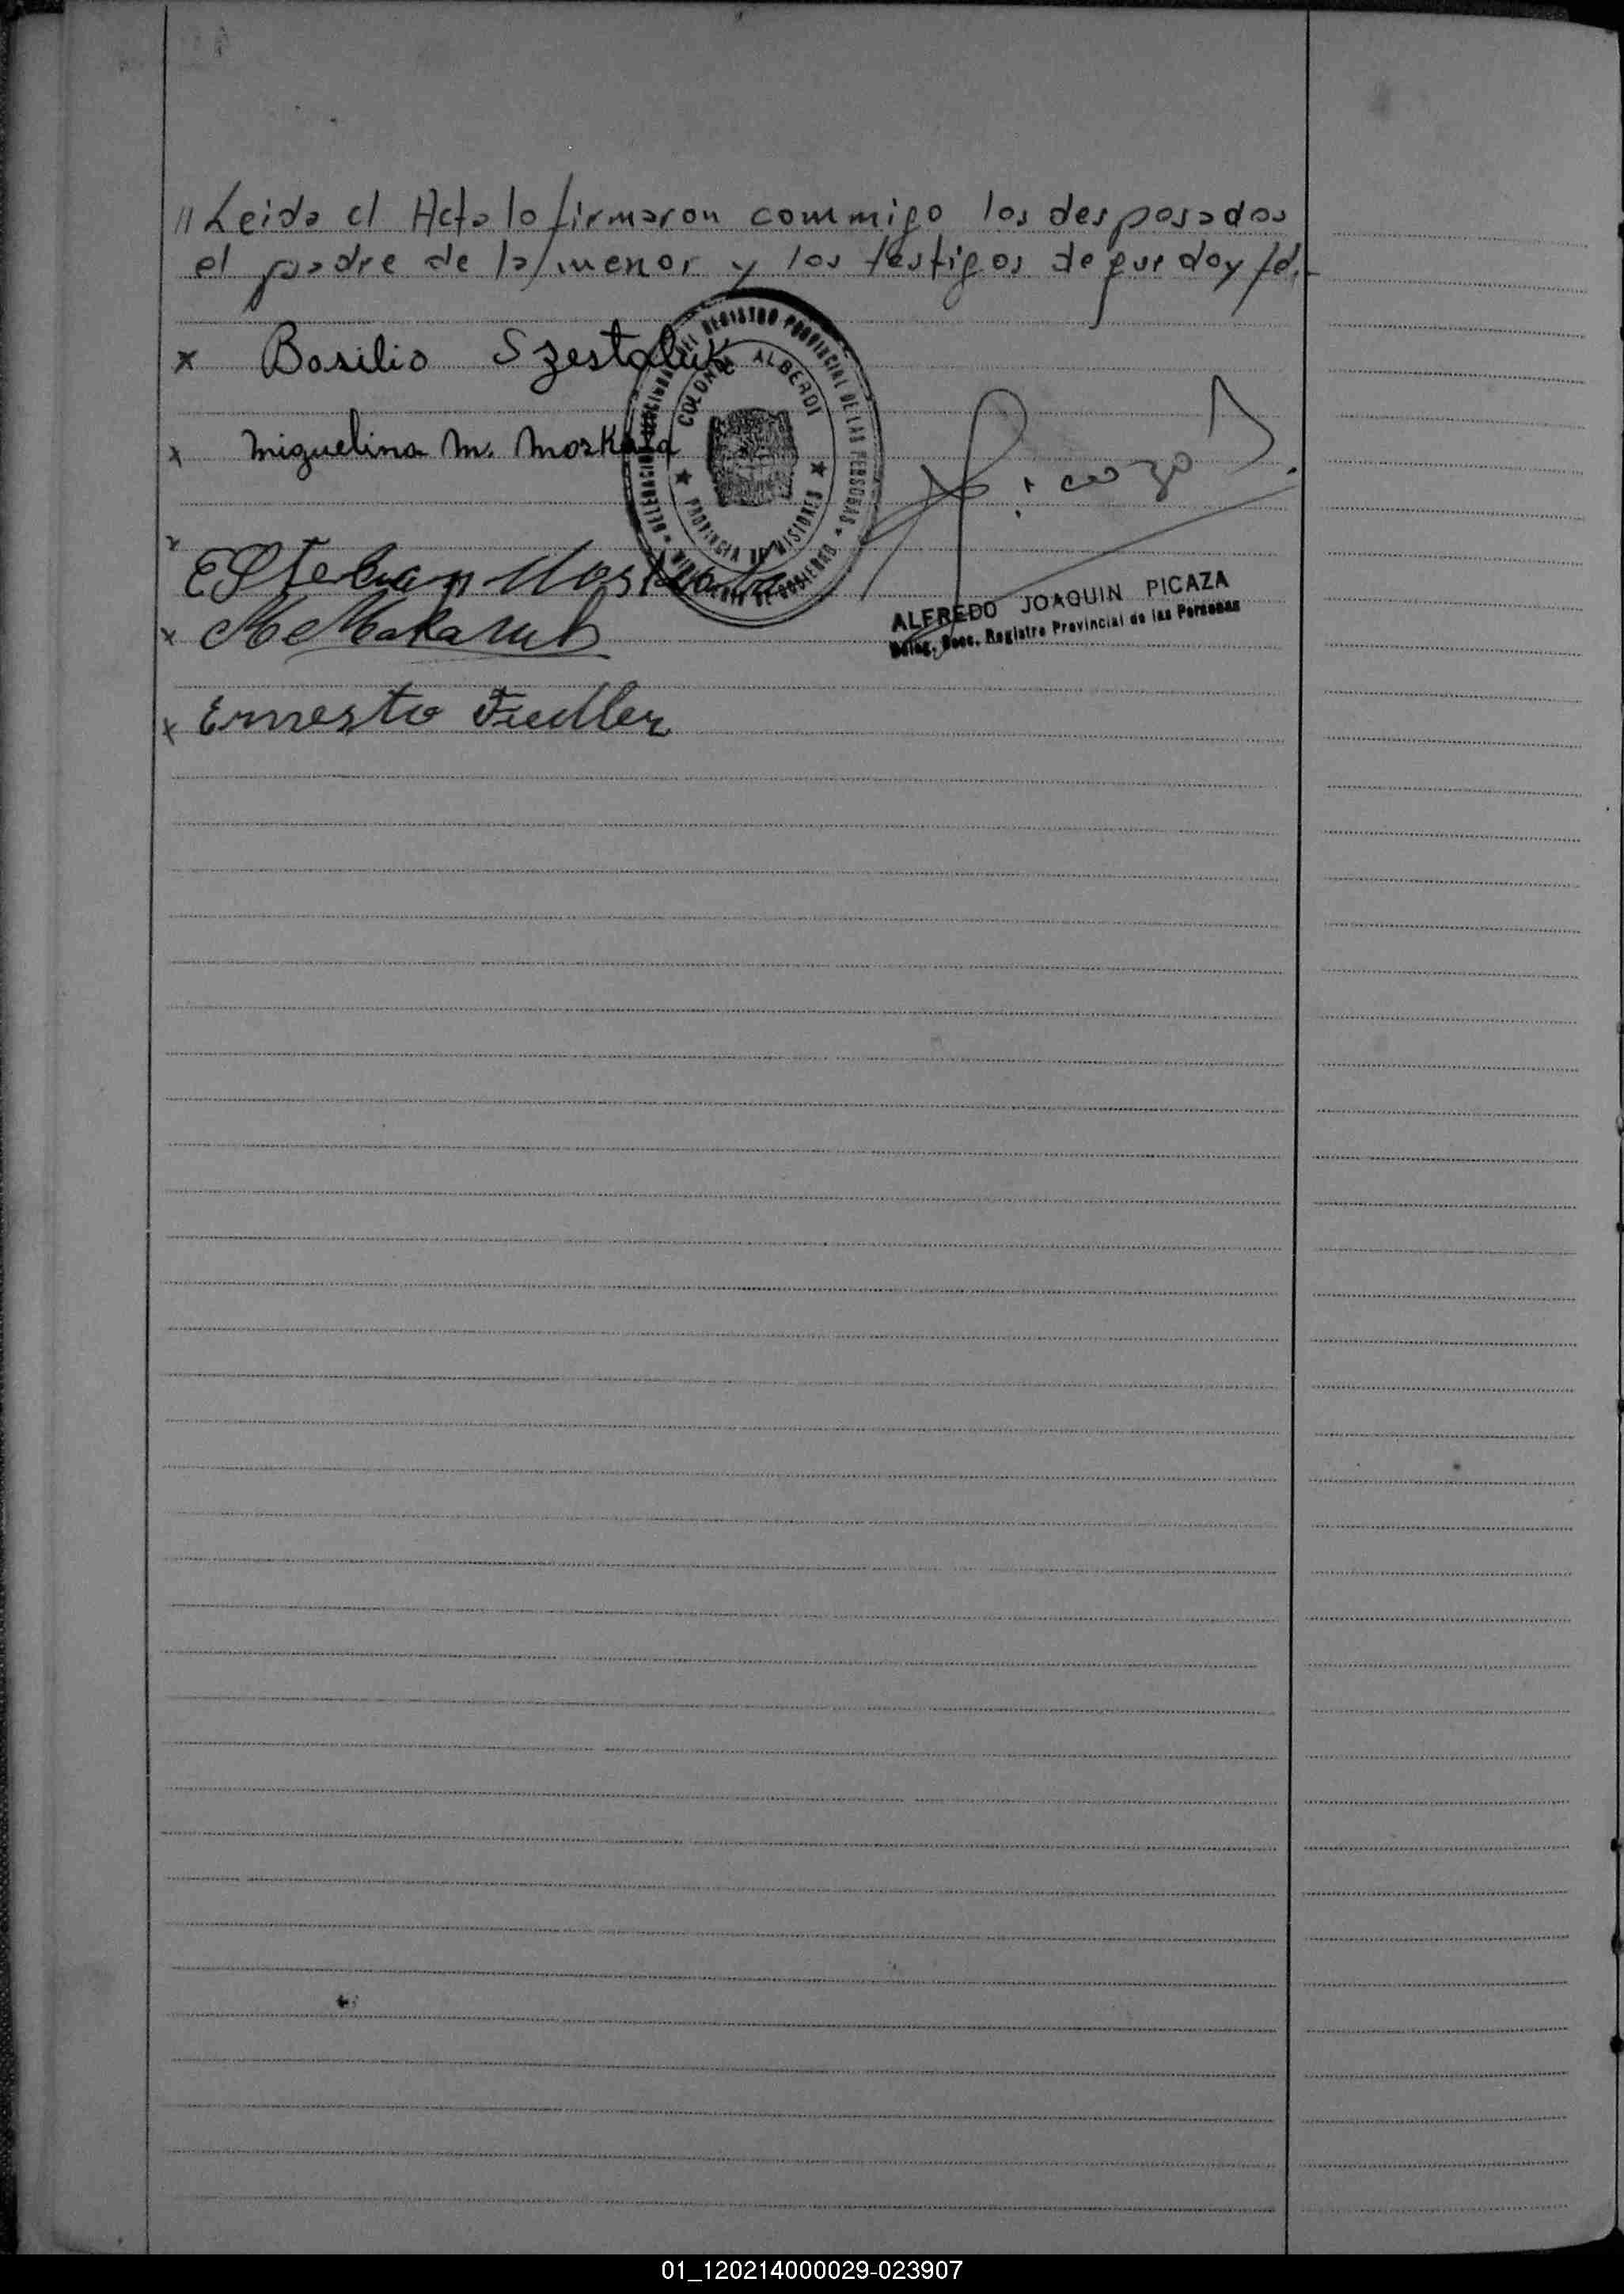 // Leida el Acta lo firmaron commigo los desposados
el padre de la/menor y los testigos de que doy fé.
x Basilio Szestaluk
x Miguelina M. Moskala
DEL REGISTRO PROVINCIAL DE LAS PERSONAS
COLONIA ALBERDI
PROVINCIA DE MISIONES
Picaza J.
x Esteban
ALFREDO JOAQUIN PICAZA
Deleg. Secc. Registro Provincial de las Personas
x
x Ernesto Fiedler
01_120214000029-023907